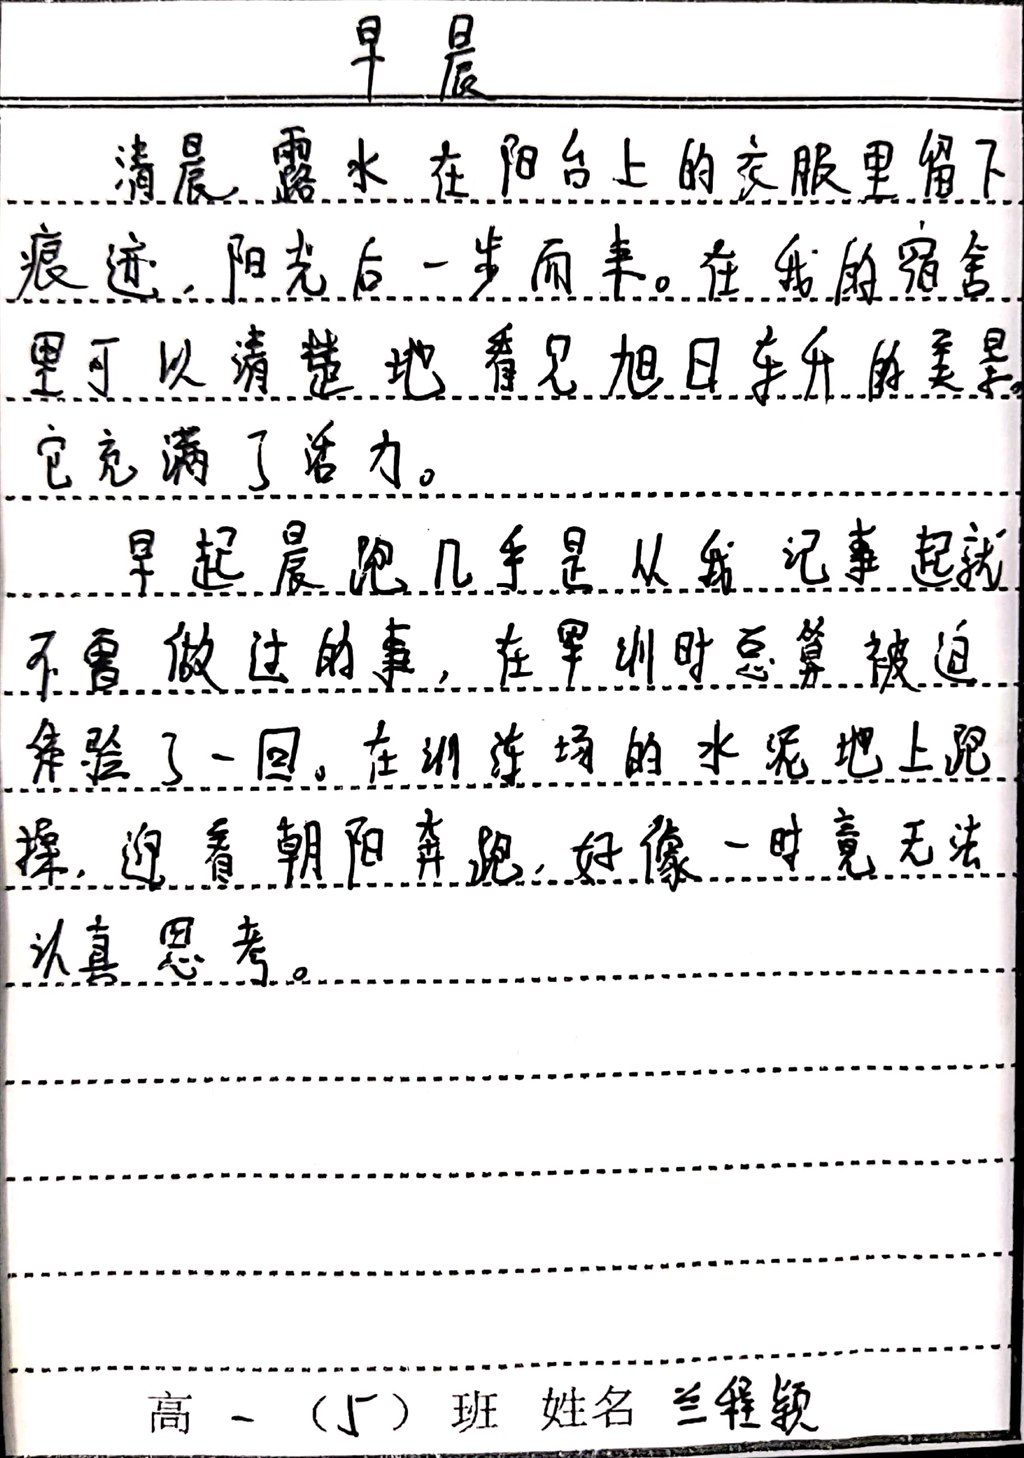 早晨
清晨,露水在阳台上的衣服里留下
痕迹,阳光后一步而来。在我的宿舍
里可以清楚地看见旭日东升的美景。
它充满了活力。
早起晨跑几乎是从我记事起就
不曾做过的事,在军训时总算被迫
体验了一回。在训练场的水泥地上跑
操,迎着朝阳奔跑,好像一时竟无法
认真思考。
高一(5)班 姓名 兰程颖